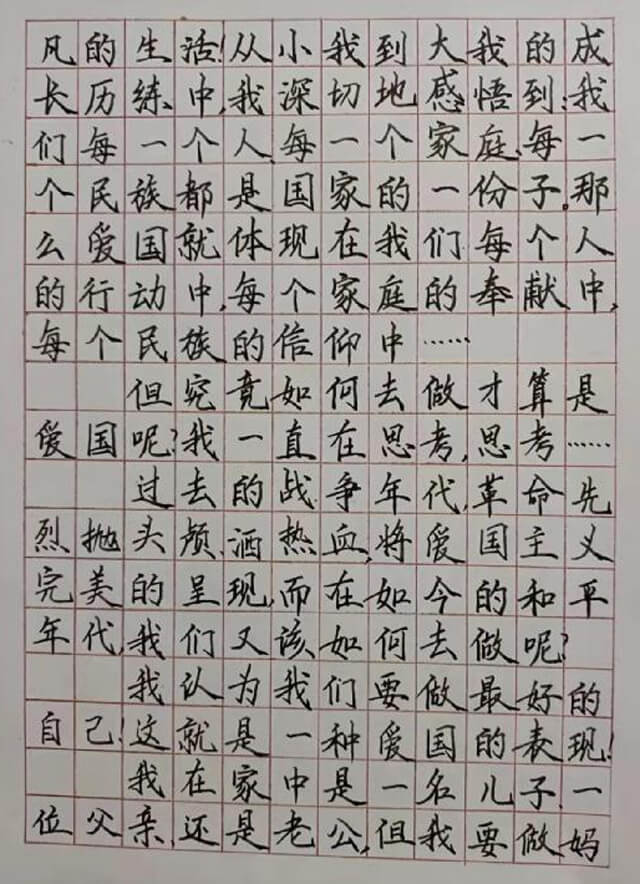 凡的生活！从小我到大我的成
长历练中，我深切地感悟到：我
们每一个人、每一个家庭、每一
个民族都是国家的一份子。那
么爱国就体现在我们每个人
的行动中，每个家庭的奉献中，
每个民族的信仰中……
但究竟如何去做才算是
爱国呢？我一直在思考，思考……
过去的战争年代，革命先
烈抛头颅、洒热血，将爱国主义
完美的呈现，而在如今的和平
年代，我们又该如何去做呢？
我认为我们要做最好的
自己！这就是一种爱国的表现！
我在家中是一名儿子、一
位父亲，还是老公，但我要做妈